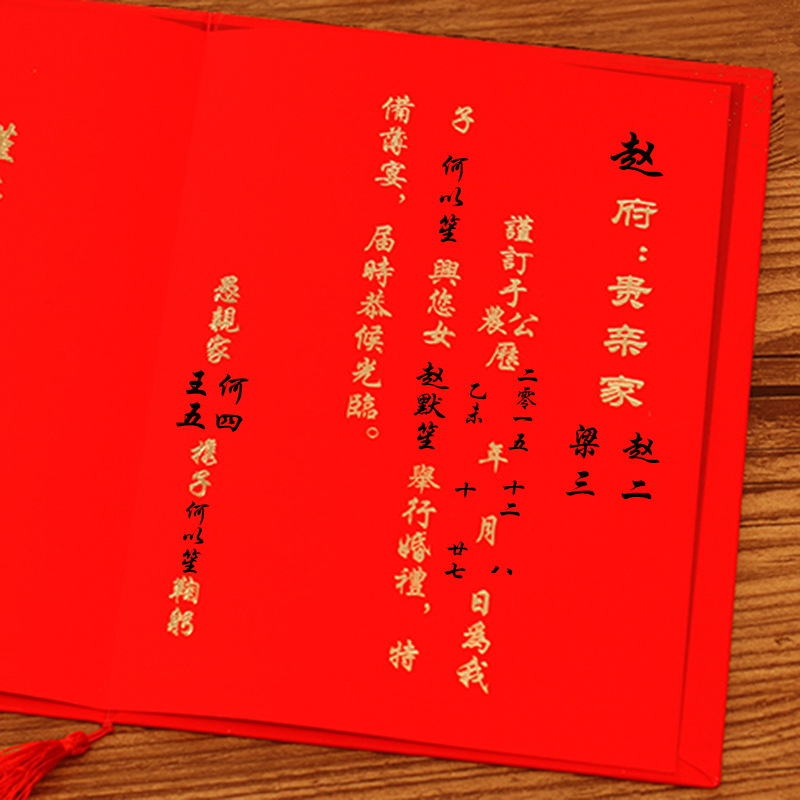 赵府:贵亲家
赵二
梁三
謹訂于公 二零一五 年 十二 月 八 日為我
農歷 乙未 十 廿七
子 何以笙 與您女 赵默笙 舉行婚禮,特
備薄宴,届時恭候光臨。
愚親家 何四
王五
攜子 何以笙 鞠躬